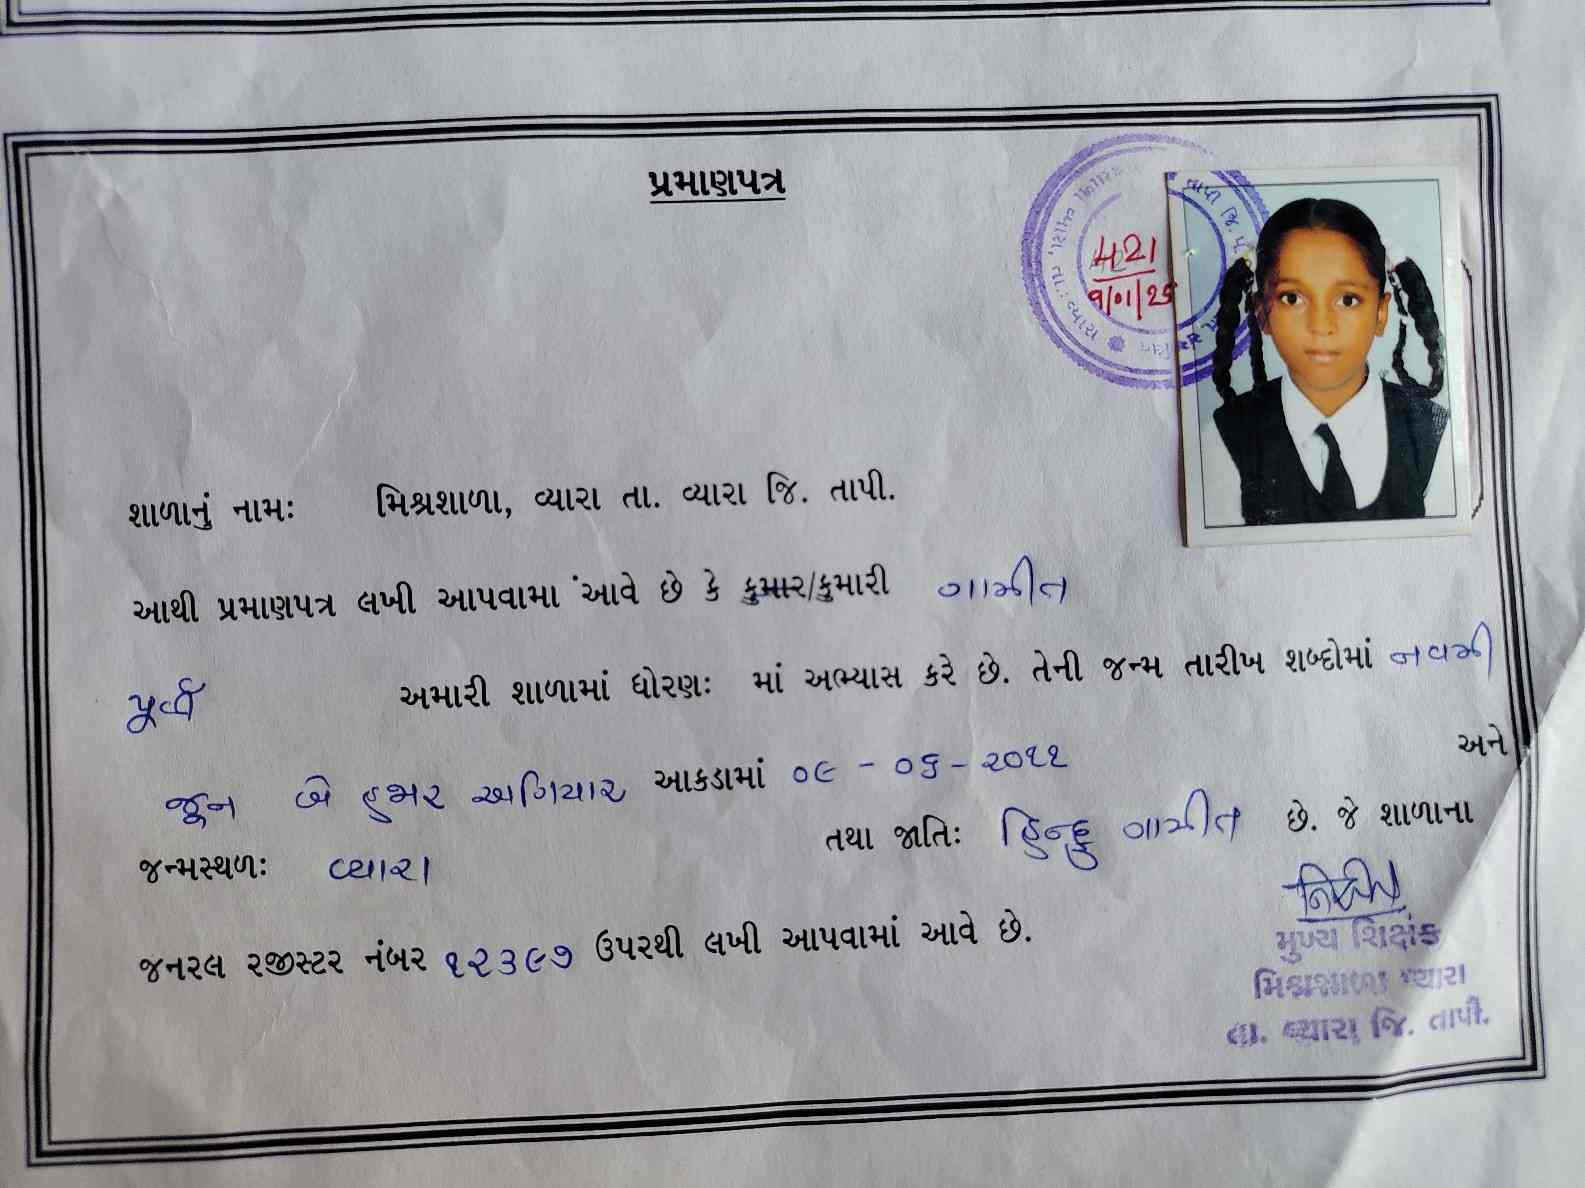 પ્રમાણપત્ર
421
9/01/25
શાળાનું નામઃ મિશ્રશાળા, વ્યારા તા. વ્યારા જિ. તાપી.
આથી પ્રમાણપત્ર લખી આપવામાં આવે છે કે કુમાર/કુમારી ગામીત
પૂર્વી અમારી શાળામાં ધોરણઃ માં અભ્યાસ કરે છે. તેની જન્મ તારીખ શબ્દોમાં નવમી
જૂન બે હજાર અગિયાર આકડામાં ૦૯ - ૦૬ - ૨૦૧૧ અને
જન્મસ્થળઃ વ્યારા તથા જાતિઃ હિન્દુ ગામીત છે. જે શાળાના
જનરલ રજીસ્ટર નંબર ૧૨૩૯૭ ઉપરથી લખી આપવામાં આવે છે.
મુખ્ય શિક્ષક
મિશ્રશાળા વ્યારા
તા. વ્યારા જિ. તાપી.